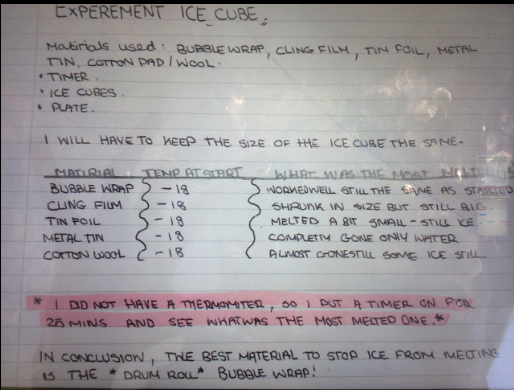 EXPEREMENT ICE CUBE.
Matirials used: BUBBLE WRAP, CLING FILM, TIN FOIL, METAL
TIN, COTTON PAD/WOOL.
• TIMER.
• ICE CUBES.
• PLATE.
I WILL HAVE TO KEEP THE SIZE OF THE ICE CUBE THE SAME.
MATIRIAL TEMP AT START WHAT WAS THE MOST MELTED
BUBBLE WRAP -18 WORKED WELL STILL THE SAME AS STARTED
CLING FILM -18 SHRUNK IN SIZE BUT STILL BIG.
TIN FOIL -18 MELTED A BIT SMALL - STILL ICE
METAL TIN -18 COMPLETLY GONE ONLY WATER
COTTON WOOL -18 ALMOST GONE STILL SOME ICE STILL
* I DID NOT HAVE A THERMOMITER, SO I PUT A TIMER ON FOR
25 MINS AND SEE WHAT WAS THE MOST MELTED ONE.*
IN CONCLUSION, THE BEST MATERIAL TO STOP ICE FROM MELTING
IS THE *DRUM ROLL* BUBBLE WRAP!